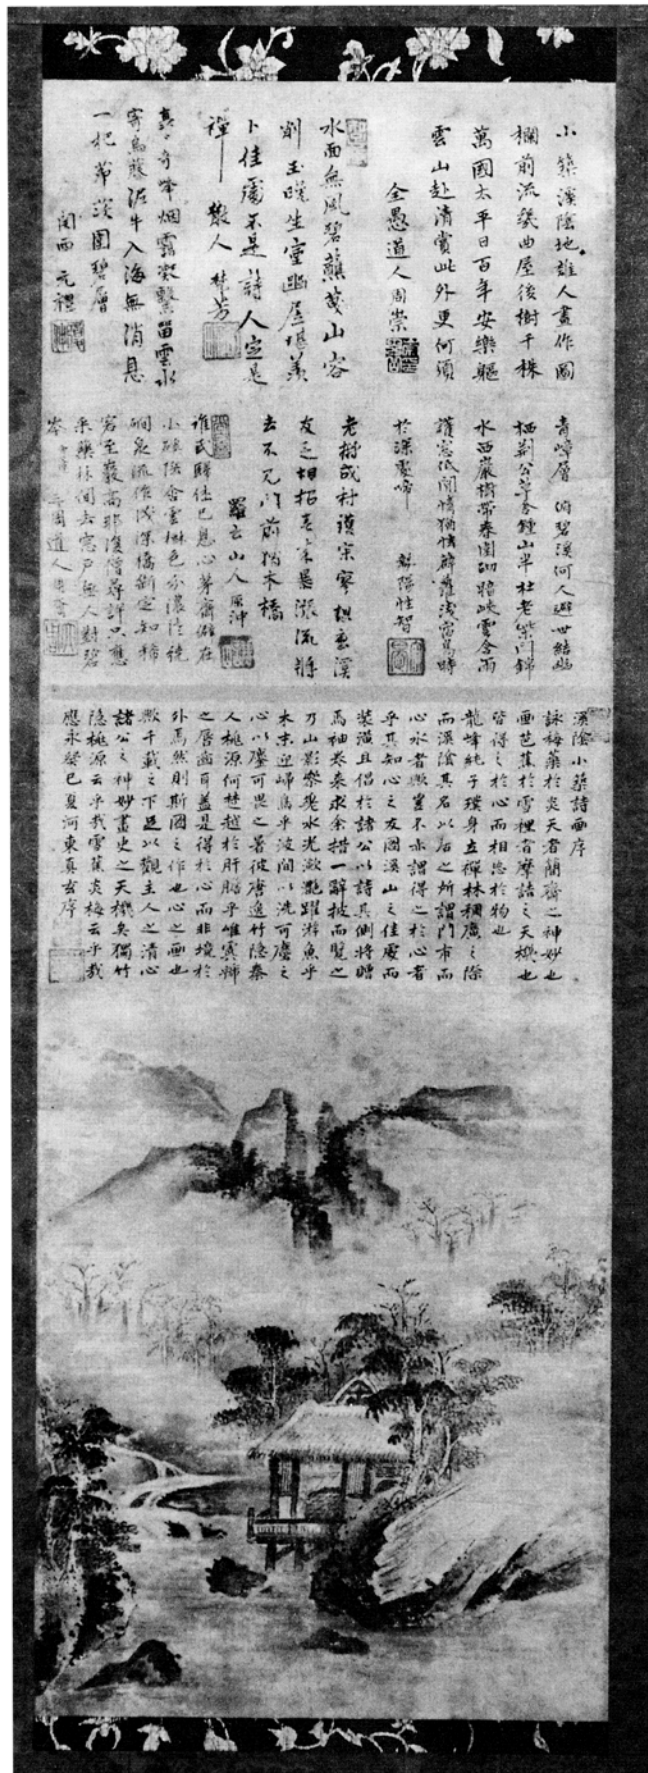 小築溪陰地雄人畫作圖
欄前流幾曲屋後樹千株
萬國太平日百年安樂軀
雲山赴清賞此外更何須
全愚道人周崇
水面無風碧蘸茂山容
削玉曉生室幽居堪羨
卜佳處不是詩人定是
禪 散人梵芳
奇峰烟靄凝繫留雲水
寄烏藤泥牛入海無消息
一把茅茨圍碧層
関西 元禮
青嶂層 俯碧溪何人避世結幽
栖荊公草舍鍾山半杜老柴門錦
水西巖樹帶春圍砌暗峽雲含雨
護窓低閑情猶
於深處啼 性智
老樹成村護寂寥棋
友乏相招
去不見門前獨木橋
羅云山人
誰氏歸佳已息心茅齋僻在
小
澗泉流作淺深橋斷定知稀
客至巖高那復僧尋評只應
采藥林間去窓戶無人對碧
岑
溪陰小築詩画序
詠梅蘂於炎天者簡齋之神妙也
画芭蕉於雪裡者摩詰之天機也
皆得之於心而相忘於物也
龍峰純子璞身立禪林稠廣之際
而溪陰其名以居之所謂門市而
心水者歟豈不亦謂得之於心者
乎其知心之友圖溪山之佳處而
裝潢且倡於諸公以詩其側將贈
焉袖卷來求余措一辭披而覽之
乃山影
木末迎歸鳥乎波間以洗可塵之
心以塵可畏之暑彼唐逸竹隱秦
人桃源何楚越於肝膽乎
之唇齒盖是得於心而非境於
外焉然則斯圖之作也心之画也
歟千載之下足以觀主人之清心
諸公之神妙畫史之天機矣獨竹
隱桃源云乎哉雪蕉炎梅云乎哉
應永癸巳夏河東真玄序